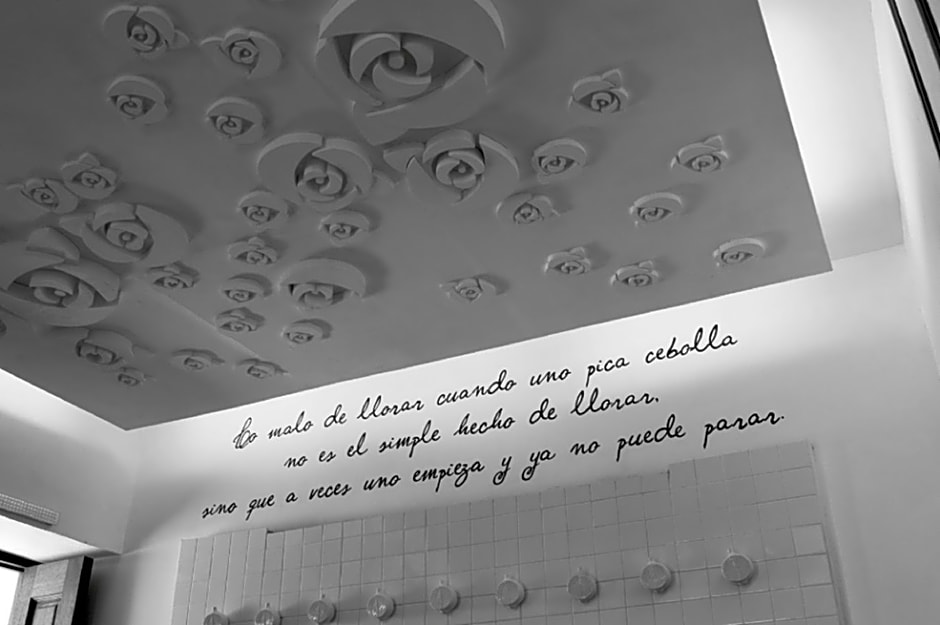 Lo malo de llorar cuando uno pica cebolla
no es el simple hecho de llorar,
sino que a veces uno empieza y ya no puede parar.